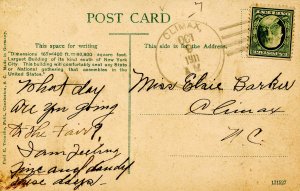 POST CARD
This space for writing
This side is for the Address.
Dimensions 167×400 ft.=80,800 square feet.
Largest Building of its kind south of New York
City. This building will comfortably seat any State
or National gathering that assembles in the
United States.
CLIMAX
OCT
191
What day
are you going
to the Fair?
I am feeling
fine and dandy
these days.
Miss Elsie Barker
Climax
N.C.